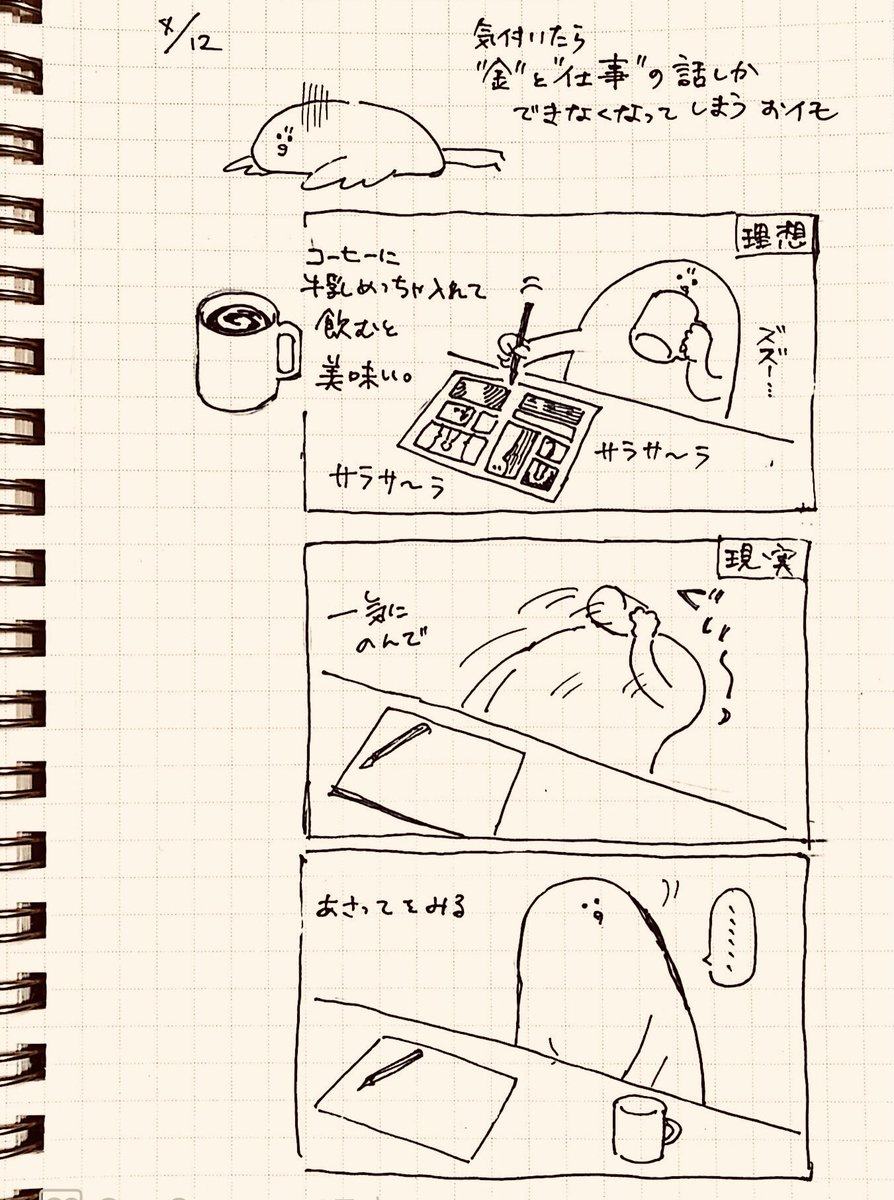 8/12
気付いたら
"金"と"仕事"の話しか
できなくなってしまうおイモ
理想
コーヒーに
牛乳めっちゃ入れて
飲むと
美味い。
ズズー…
サラサ〜ラ
サラサ〜ラ
現実
一気に
のんで
ぐい〜っ
あさってをみる
………